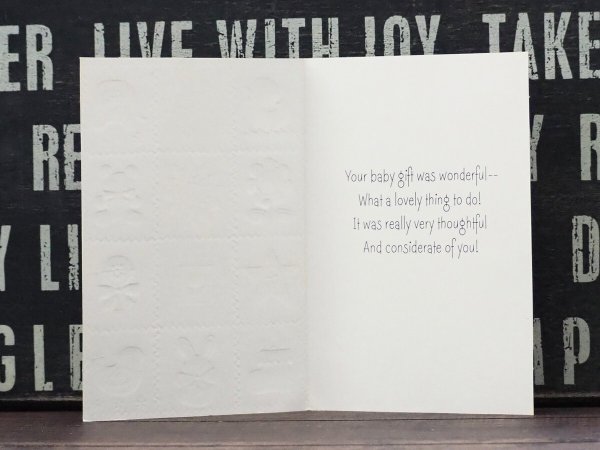 ER LIVE WITH JOY TAKE
Your baby gift was wonderful--
What a lovely thing to do!
It was really very thoughtful
And considerate of you!